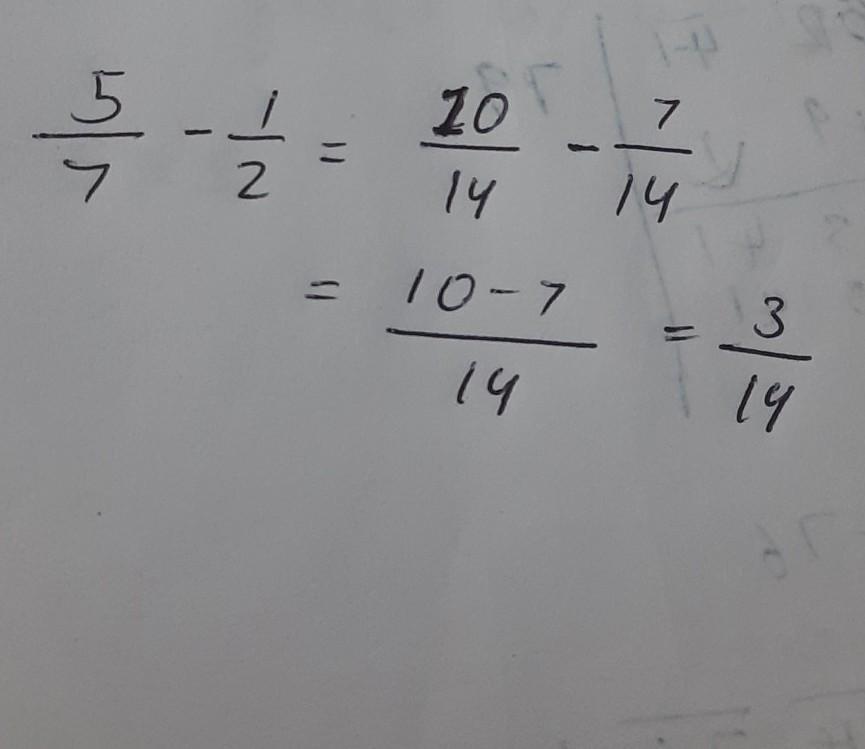 5/7 - 1/2 = 10/14 - 7/14
= 10-7/14 = 3/14